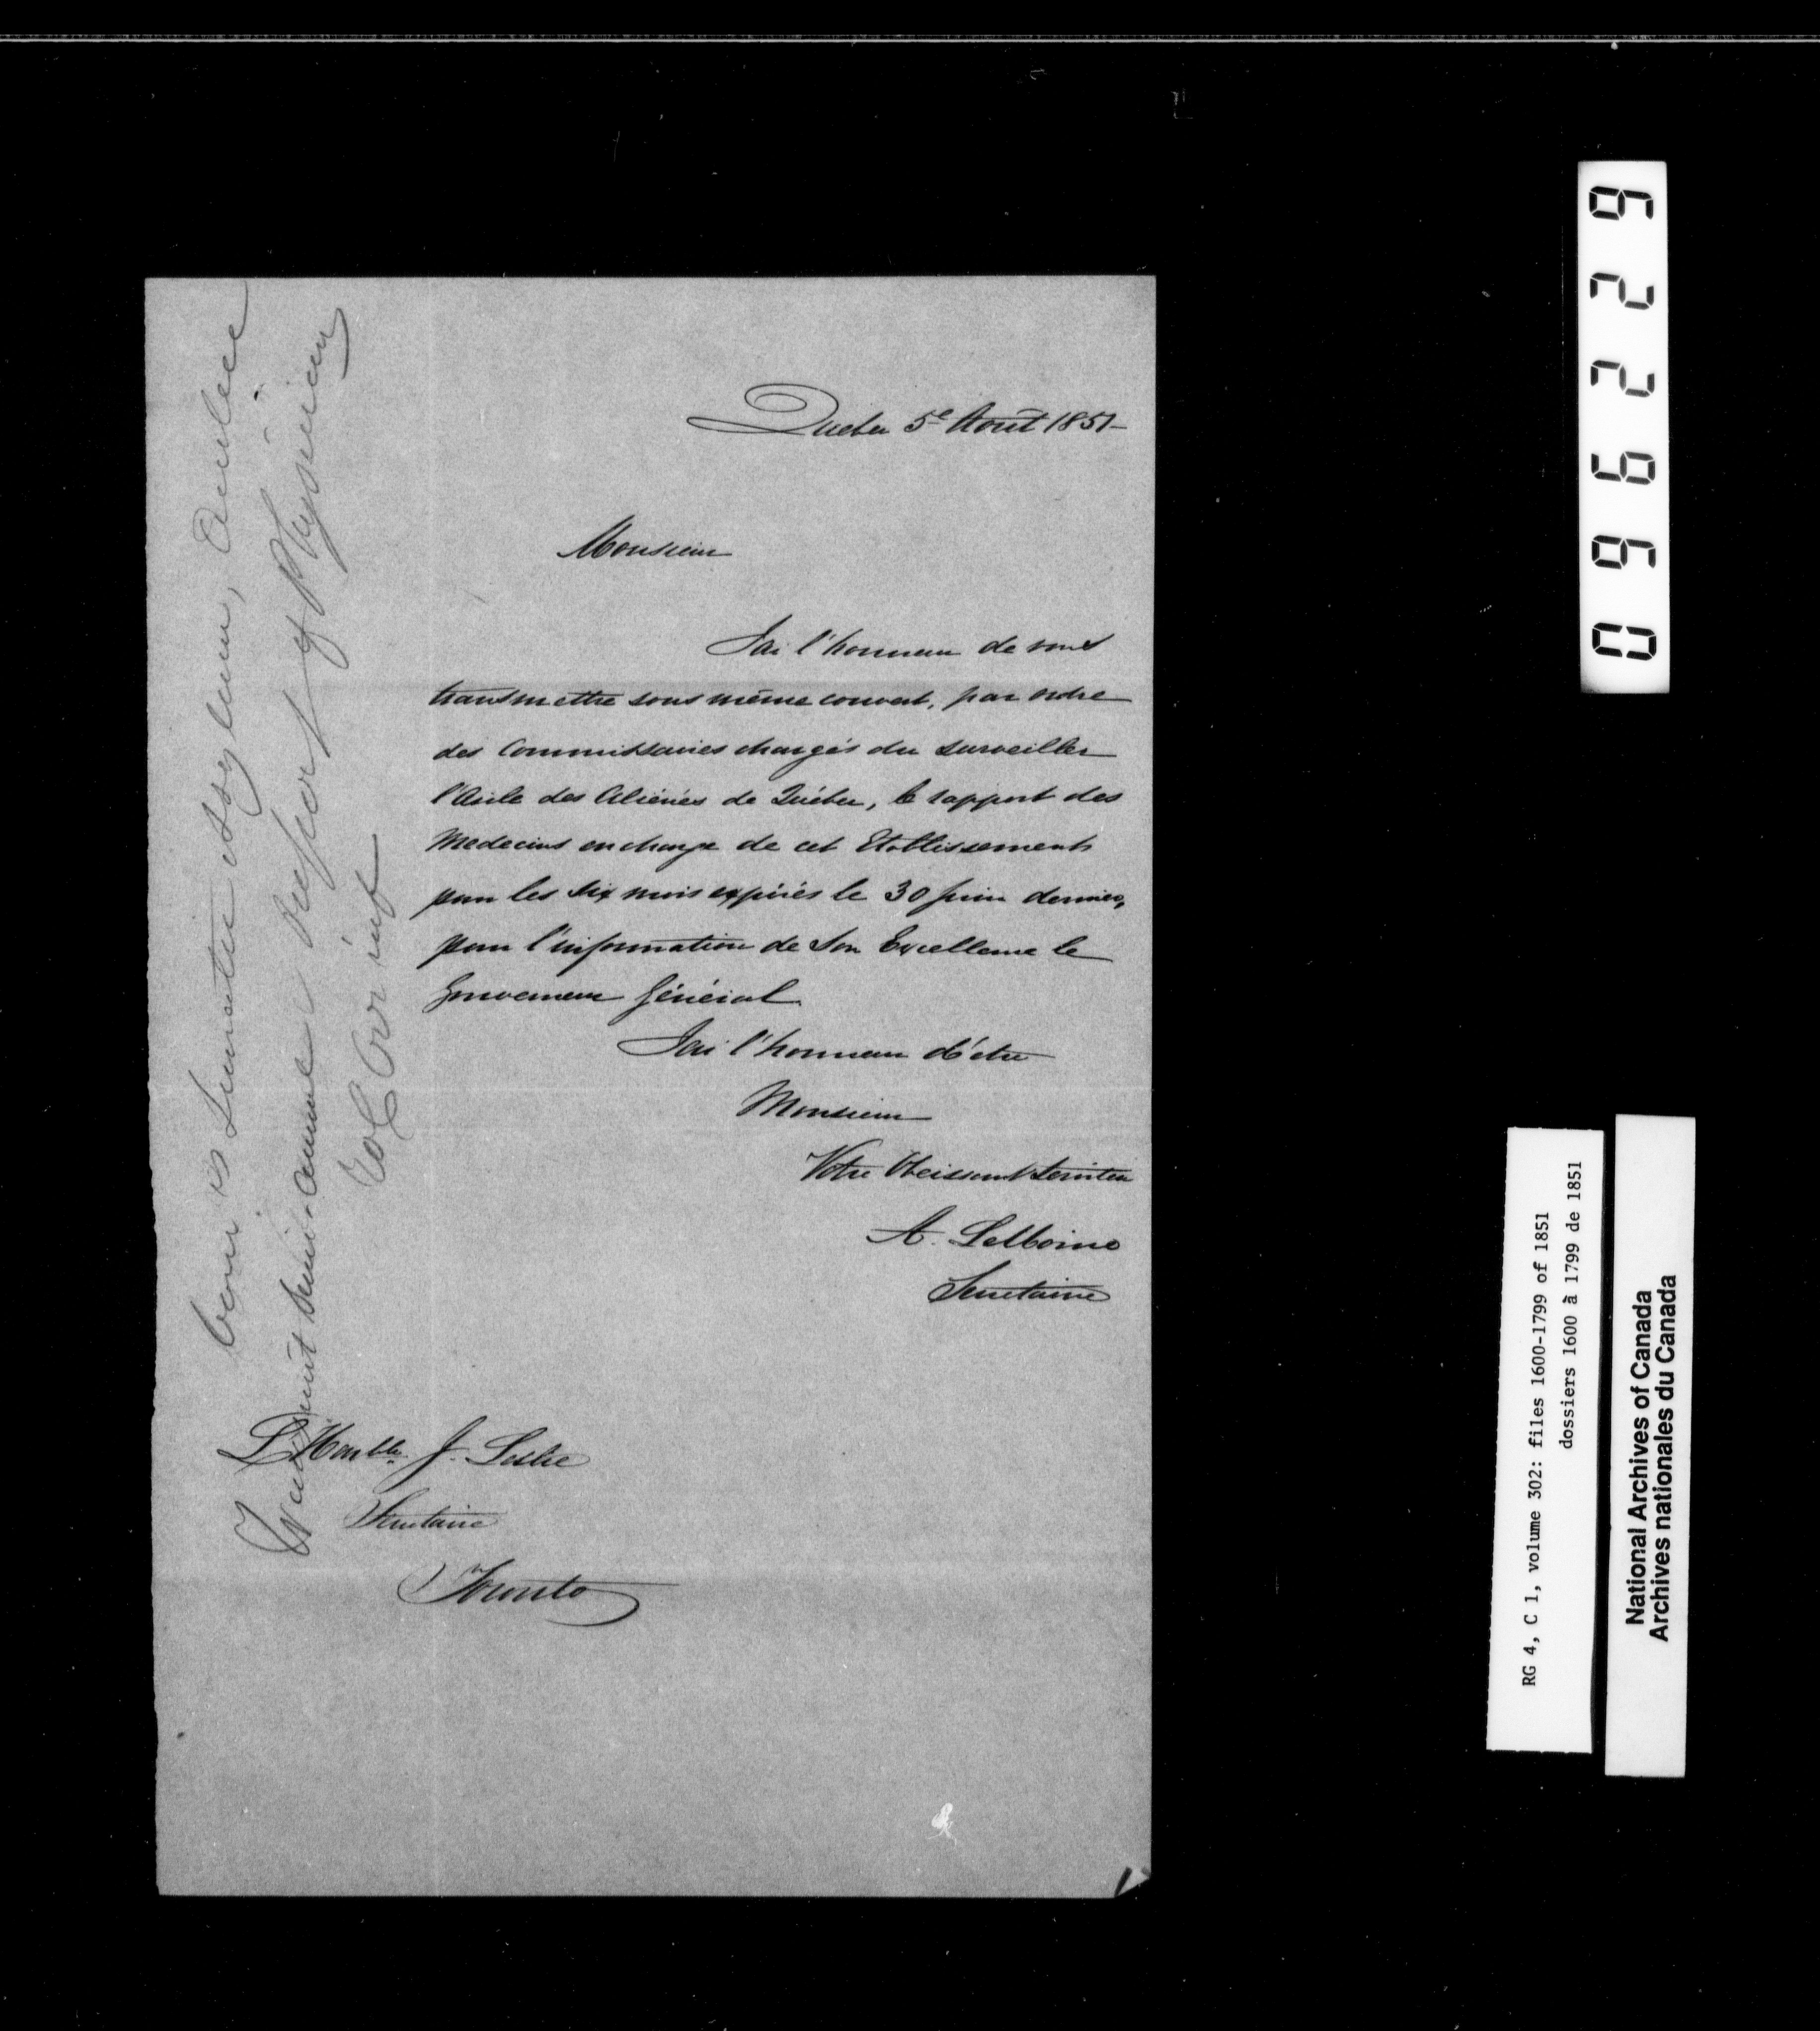 Quebec 5e Août 1851-
Monsieur
J'ai l'honneur de vous
transmettre sous même couvert, par ordre
des Commissaires chargés du surveiller
l'Asile des Aliénés de Québec, le rapport des
Medecins en charge de cet Etablissement
pour les six mois expirés le 30 Juin dernier,
pour l'information de Son Excellence le
Gouverneur Général.
J'ai l'honneur d'etre
Monsieur
Votre Obeissant Serviteur
A. LeMoine
Secretaire
L'Honble. J. Leslie
Secretaire
Toronto
Com'rs Lunatic Assylum, Quebec
Transmit Semi-Annual Report of Physicians
096229
RG 4, C 1, volume 302: files 1600-1799 of 1851
dossiers 1600 à 1799 de 1851
National Archives of Canada
Archives nationales du Canada